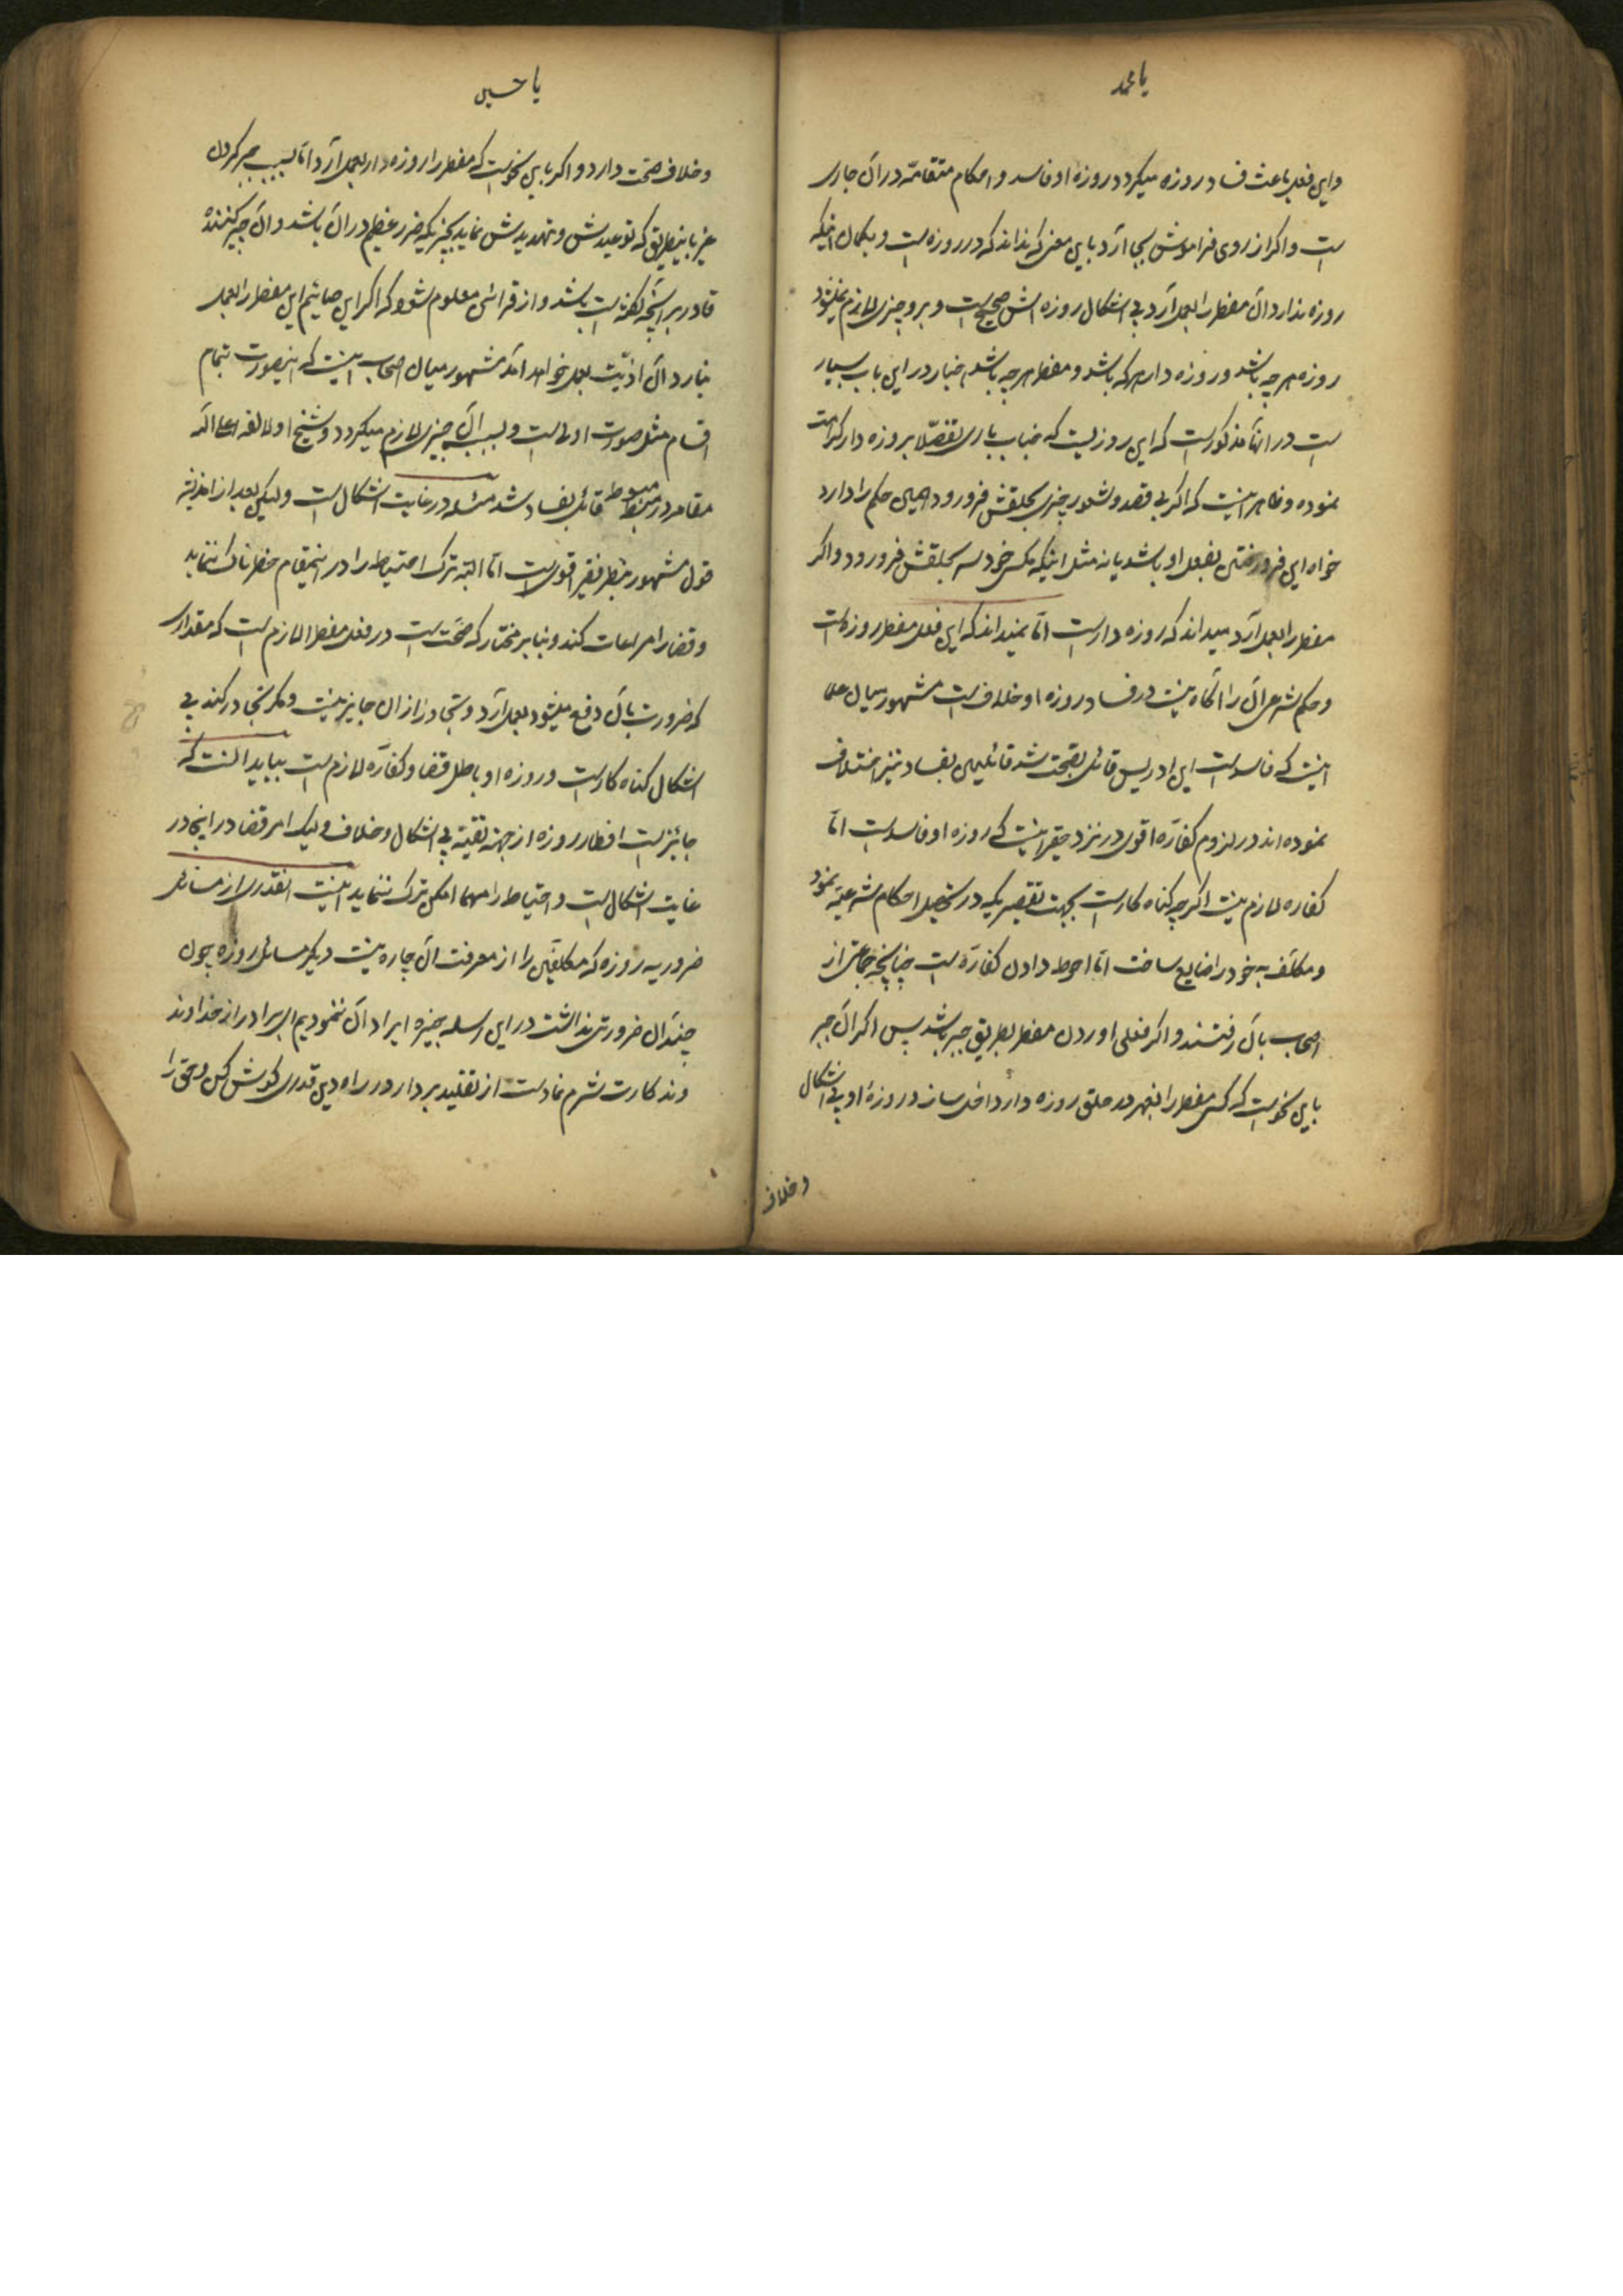 یا محمد
و این فعل باعث فساد روزه میکردد روزه او فاسد و احکام متقدمّه در آن جاری
است و اکر از روی فراموشی بجا آرد باین معنی که نداند که در روزه است و بکمان اینکه
روزه ندارد آن مفطر را بعمل آرد بی اشکال روزه اش صحیح است و برو چیزی لازم نمیشود
روزه هر چه باشد و روزه دار هر که باشد و مفطر هر چه باشد اخبار در این باب بسیار
است در آنها مذکور است که این روزیست که جناب باری تفضّلا بروزه دار کرامت
نموده و ظاهر اینست که اکر بی قصد و شعور چیزی بحلقش فرو رود همین حکم را دارد
خواه این فرو رفتن بفعل او باشد یا نه مثل اینکه مکس خود سر بحلقش فرو رود و اکر
مفطر را بعمل آرد میداند که روزه دار است امّا نمیداند که این فعل مفطر روزه است
و حکم شرعی آن را آکاه نیست در فساد روزه او خلاف است مشهور میان علما
اینست که فاسد است ابن ادریس قائل بصحّت شد قائلین بفساد نیز اختلاف
نموده اند در لزوم کفاره اقوی در نزد حقیر اینست که روزه او فاسد است امّا
کفاره لازم نیست اکرچه کناه کار است بجهت تقصیریکه در تحصیل احکام شرعیّه نمود
و مکلّف به خود را ضایع ساخت امّا احوط دادن کفارّه است چنانچه جماعتی از
اصحاب بآن رفتند و اکر فعلی اوردن مفطر بطریق جبر باشد پس اکر آن جبر
باین نحو است که کسی مفطر را بقهر در حلق روزه دار داخل سازد روزهٔ او بی اشکال
و خلاف
یا حسین
و خلاف صحّت دارد و اکر باین نحو است که مفطر را روزه دار بعمل آرد امّا بسبب جبر کردن
غیر باینطریق که توعیدش و تهدیدش نماید بچیزیکه ضرر عظیم در آن باشد و آن جبر کننده
قادر بر آنچه کفته است باشد و از قرائن معلوم شود که اکر این صایم این مفطر را بعمل
نیارد آن اذیّت بعمل خواهد آمد مشهور میان اصحاب اینست که اینصورت بتمام
اقسام مثل صورت اولی است و بسبب آن چیزی لازم نمیکردد و شیخ اولا لقه اعلا الله
مقامه در مبسوط قائل بفساد شد مسئله در غایت اشکال است و لیکن بعد از
قول مشهور بنظر فقیر اقوی است امّا البته ترک احتیاط را در اینمقام خطرناک ننماید
و قضا را مراعات کند و بنا بر مختار که صحّت است در فعل مفطر لازم است که مقداری
که ضرورت بآن دفع میشود بعمل آرد و تجاوز از ان جایز نیست و کر تجاوز کند بی
اشکال کناه کار است و روزه او باطل قضا و کفاّره لازم است بباید دانست که
جائز است افطار روزه از جهة تقیّه بی اشکال و خلاف و لیک امر قضا در اینجا در
غایت اشکال است و احتیاط را مهما امکن ترک ننماید اینست انقدری از مسائل
ضروریه روزه که مکلّفین را از معرفت آن چاره نیست دیکر مسائل روزه چون
چندان ضرورتی نداشت در این رساله وجیزه ایراد آن ننمودیم ای برادر از خداوند
خداوند کارت شرم نما دست از تقلید بردار و در راه دین قدری کوشش کن و حق را